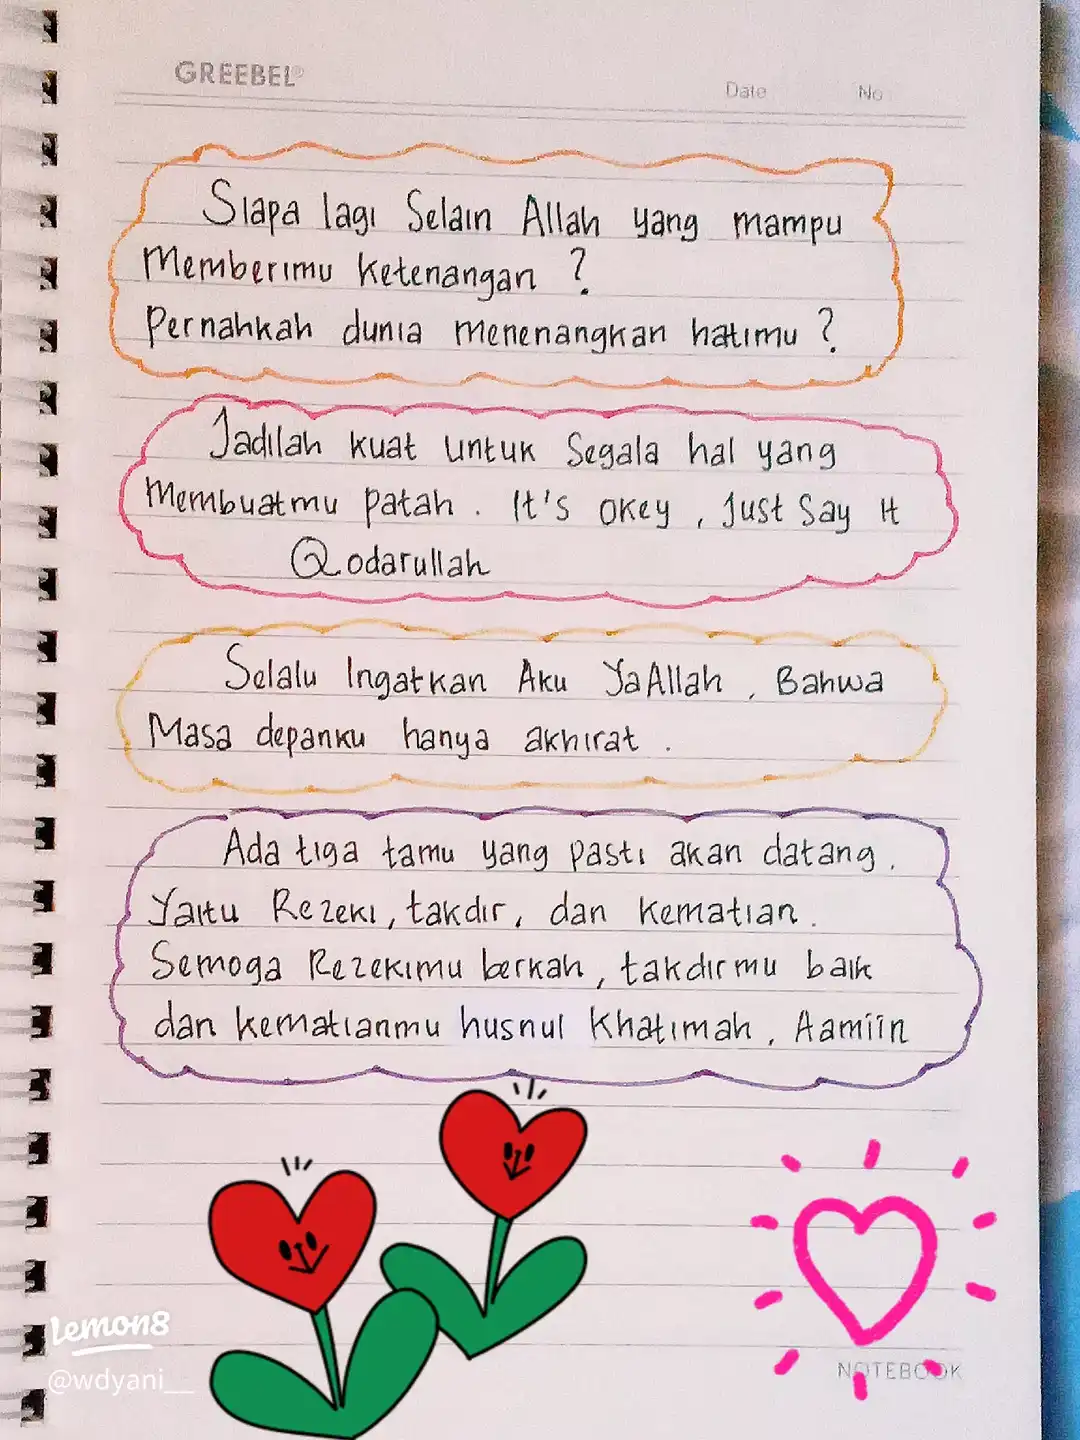 GREEBEL
Date No
Siapa lagi Selain Allah yang mampu
Memberimu Ketenangan ?
Pernahkah dunia menenangkan hatimu ?
Jadilah kuat untuk Segala hal yang
Membuatmu patah . It's okey , Just Say It
Qodarullah
Selalu Ingatkan Aku YaAllah , Bahwa
Masa depanku hanya akhirat .
Ada tiga tamu yang pasti akan datang .
Yaitu Rezeki , takdir , dan kematian .
Semoga Rezekimu berkah , takdirmu baik
dan kematianmu husnul Khatimah , Aamiin
Lemon8
@wdyani__
NOTEBOOK